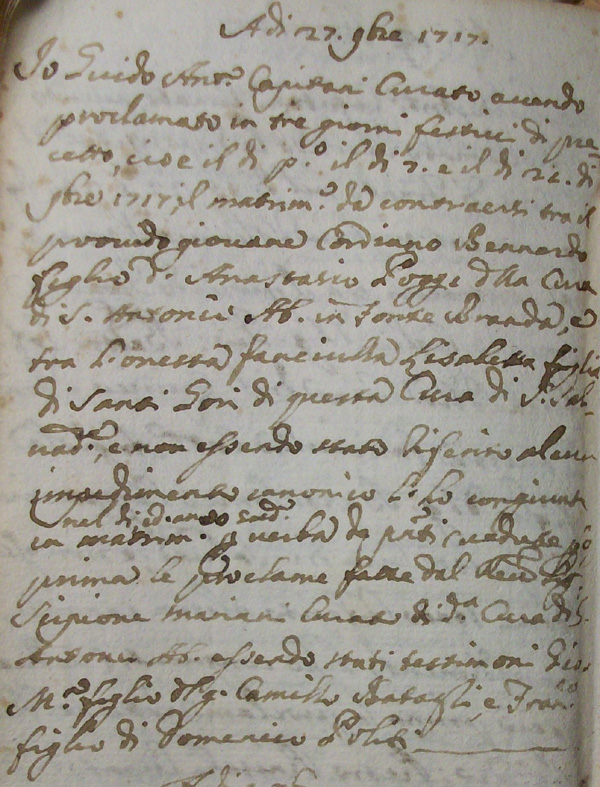 A di 27. 9bre 1717.
Io Guido Ant.o Capitani Curato avendo
proclamato in tre giorni festivi di pre-
cetto, cioè il di p.o il di 7. e il di 21. di
9bre 1717, il matrim.o da contraersi tra il
provido giovane Cordiano Bernardo
figlio d. Anastasio Poggi d'lla Cura
di S. Antonio Ab. in Fonte Branda, e
tra l'onesta fanciulla Lisabetta figlia
di Santi Gori di questa Cura di S. Sal-
vad.re, e non essendo stato riferito alcun
impedimento canonico li ho congiunti
nel di ed anno sud.o
in matrim.o p verba de pñti vedute
prima le proclame fatte dal Rev.
Scipione Mariani Curato di d.a Cura di S.
Antonio Ab. essendo stati testimoni Gio.
M.a figlio d'lg. Camillo Batagli, e Fran.co
figlio di Domenico Politi